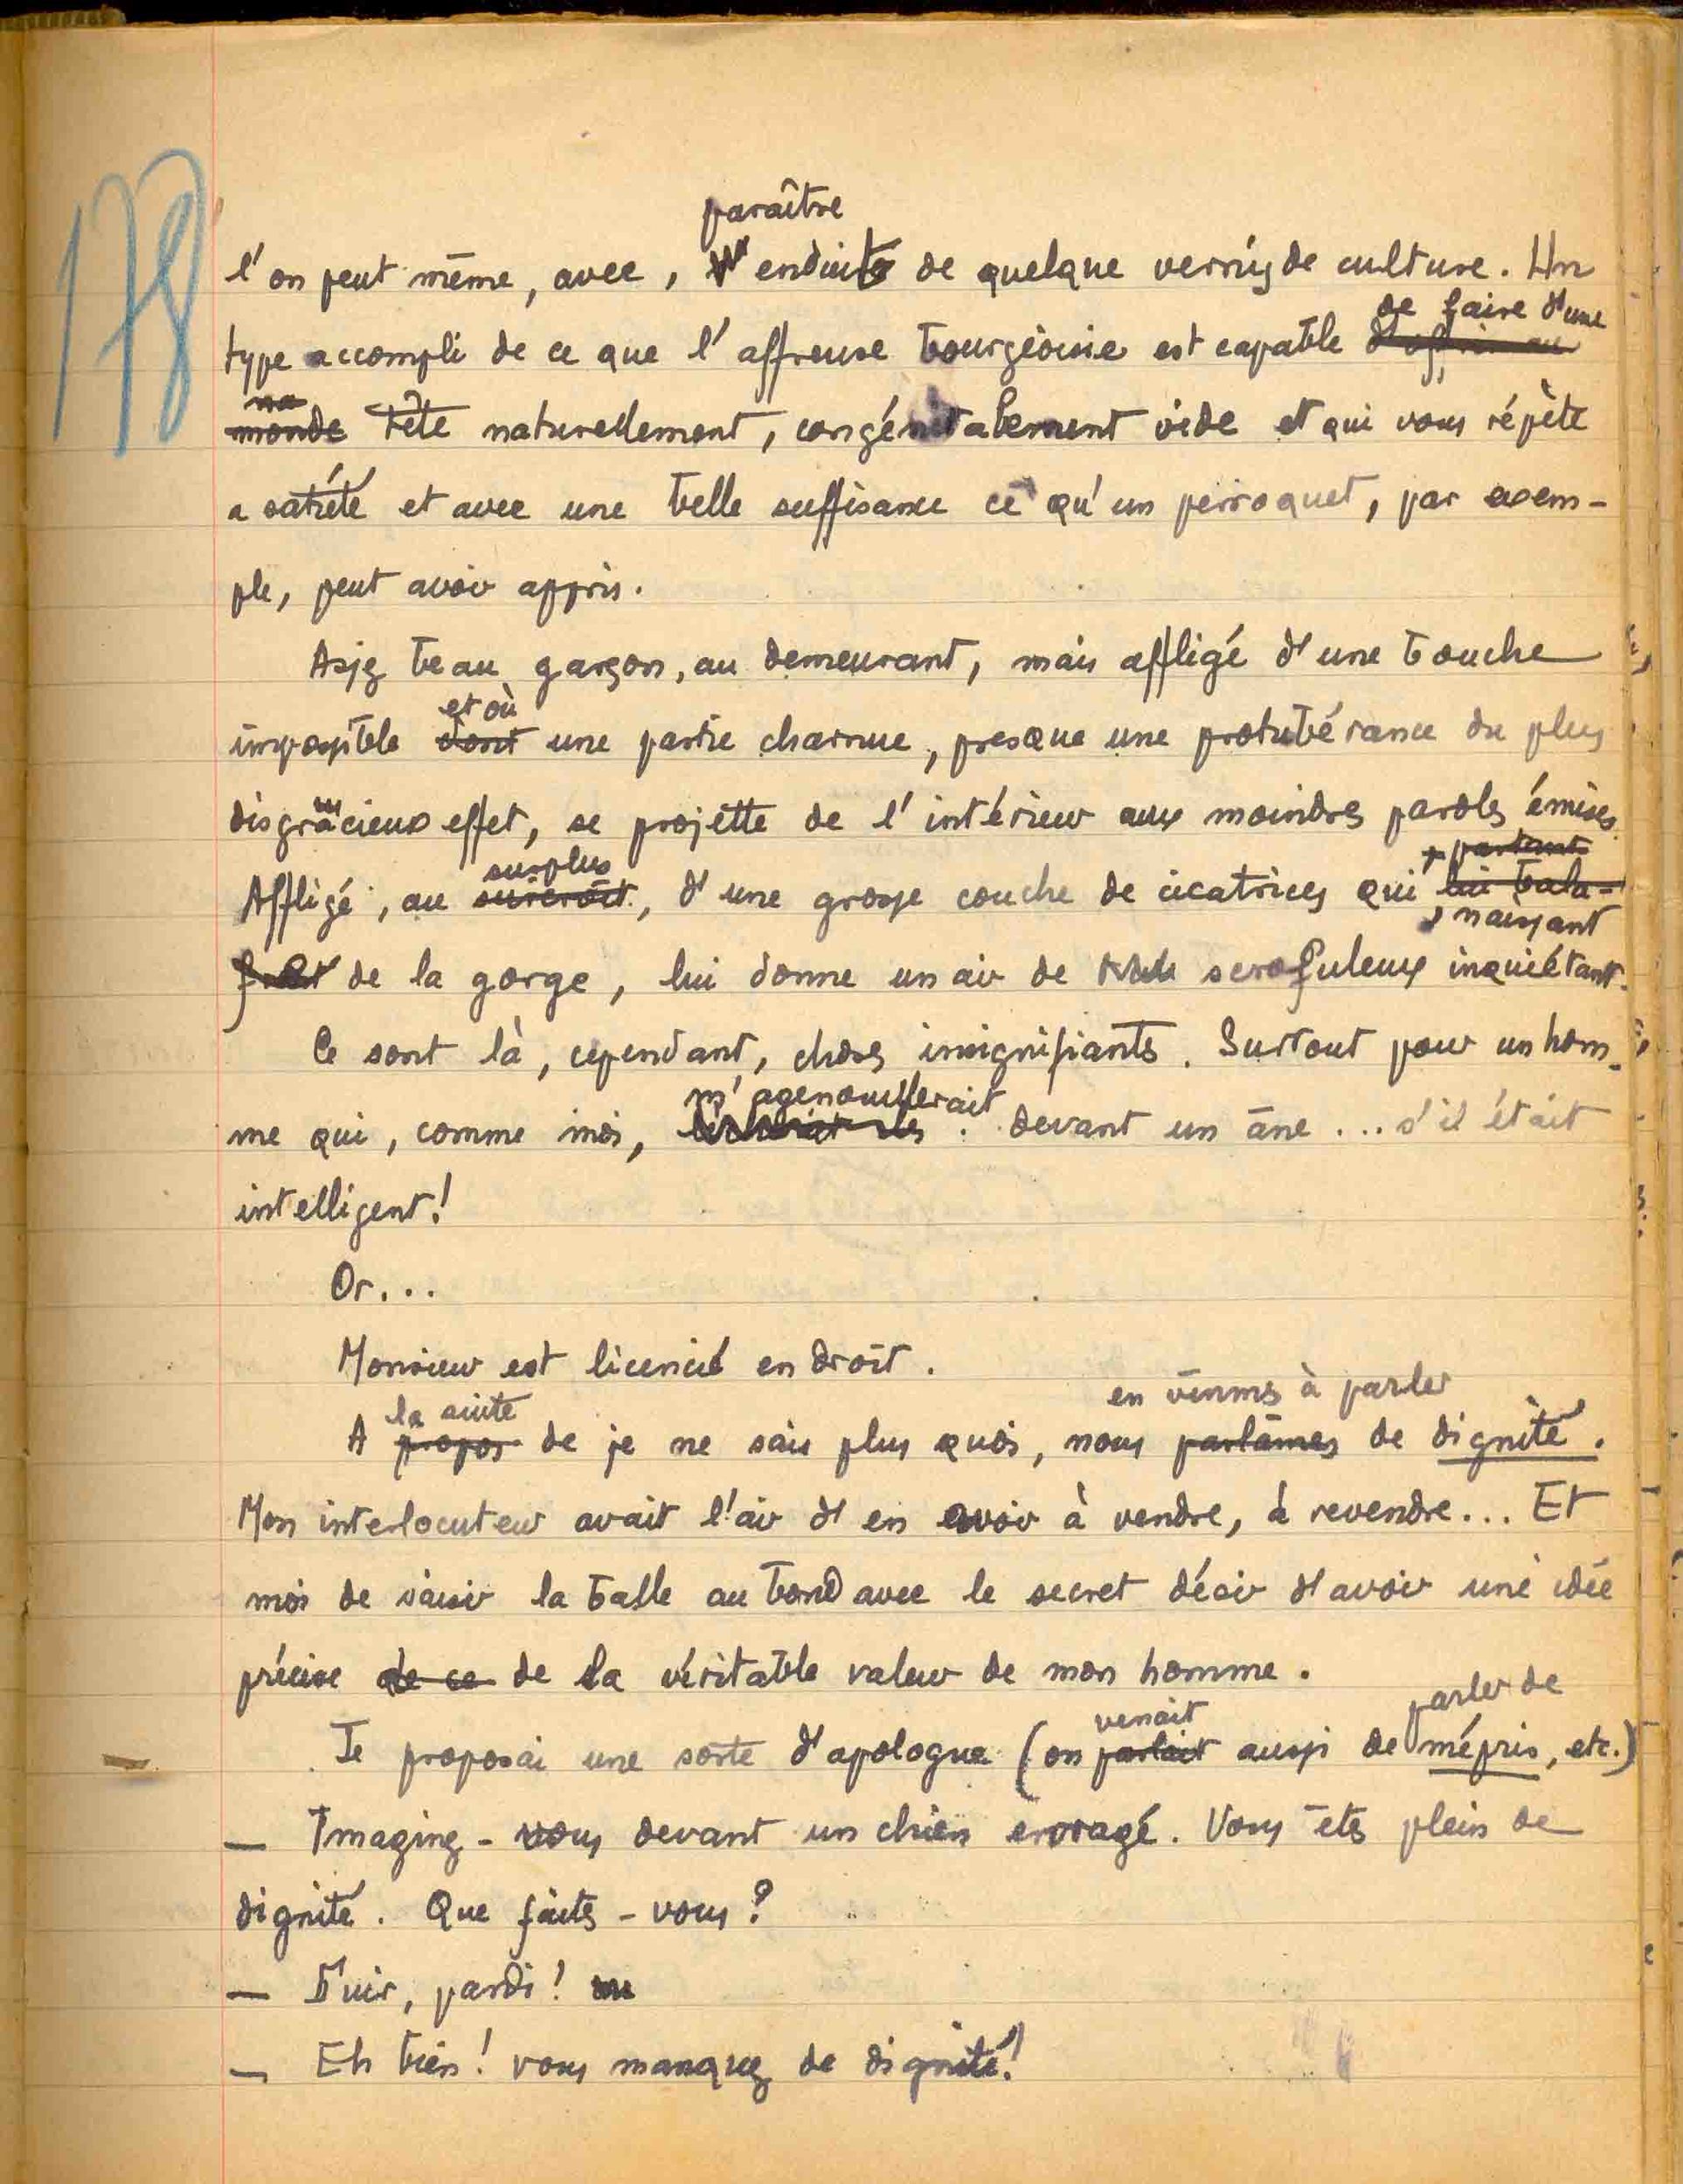 178
paraître
l'on peut même, avec, enduits de quelque vernis de culture. Un
de faire d'une
type accompli de ce que l'affreuse bourgeoisie est capable
monde tête naturellement, congénitalement vide et qui vous répète
a satiété et avec une belle suffisance ce qu'un perroquet, par exem-
ple, peut avoir appris.
Assez beau garçon, au demeurant, mais affligé d'une bouche
et où
impossible dont une partie charnue, presque une protubérance du plus
disgracieux effet, se projette de l'intérieur aux moindres paroles émises.
surplus partant
Affligé, au surcroît, d'une grosse couche de cicatrices qui lui bala-
, naissant
de la gorge, lui donne un air de scrofuleux inquiétant.
Ce sont là, cependant, choses insignifiantes. Surtout pour un hom-
m'agenouillerait
me qui, comme moi, devant un âne ... s'il était
intelligent!
Or...
Monsieur est licencié en droit.
la suite en vînmes à parler
A propos de je ne sais plus quoi, nous parlâmes de dignité.
Mon interlocuteur avait l'air d'en avoir à vendre, à revendre... Et
moi de saisir la balle au bond avec le secret désir d'avoir une idée
précise de ce de la véritable valeur de mon homme.
venait parler de
Je proposai une sorte d'apologue (on parlait aussi de mépris, etc.)
— Imaginez-vous devant un chien enragé. Vous êtes plein de
dignité. Que faites-vous?
— Fuir, pardi!
— Eh bien! vous manquez de dignité!